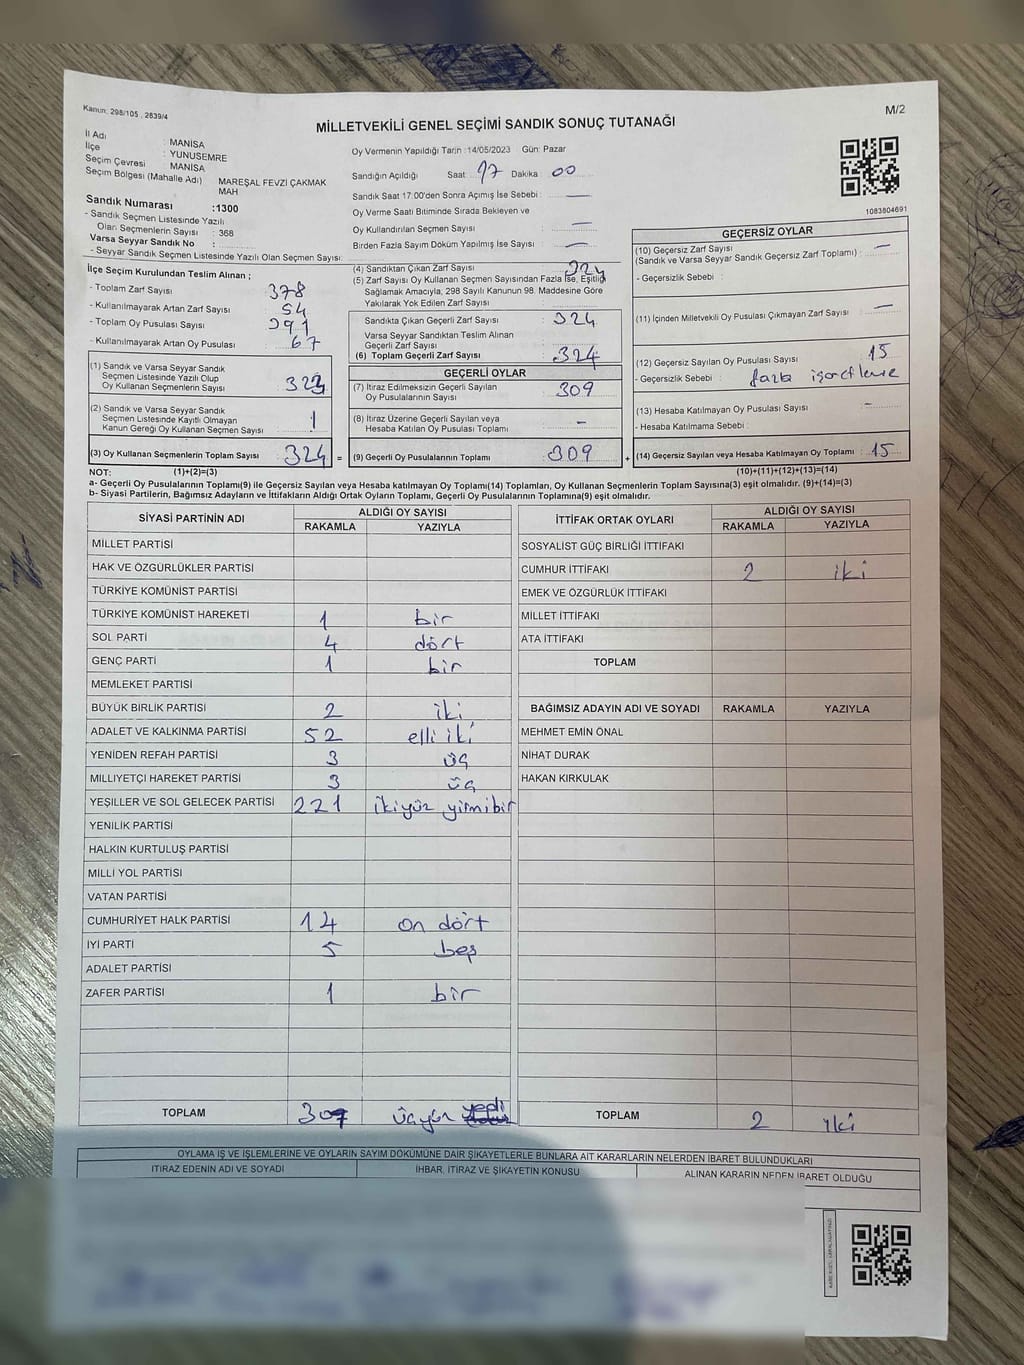 Kanun: 298/105 , 2839/4
M/2
MİLLETVEKİLİ GENEL SEÇİMİ SANDIK SONUÇ TUTANAĞI
İl Adı : MANİSA
İlçe : YUNUSEMRE
Seçim Çevresi : MANİSA
Seçim Bölgesi (Mahalle Adı) MAREŞAL FEVZİ ÇAKMAK MAH
Sandık Numarası :1300
- Sandık Seçmen Listesinde Yazılı
Olan Seçmenlerin Sayısı : 368
Varsa Seyyar Sandık No :
- Seyyar Sandık Seçmen Listesinde Yazılı Olan Seçmen Sayısı:
Oy Vermenin Yapıldığı Tarih :14/05/2023 Gün: Pazar
Sandığın Açıldığı Saat 17 Dakika 00
Sandık Saat 17:00'den Sonra Açılmış İse Sebebi : —
Oy Verme Saati Bitiminde Sırada Bekleyen ve
Oy Kullandırılan Seçmen Sayısı : —
Birden Fazla Sayım Döküm Yapılmış İse Sayısı : —
1083804691
İlçe Seçim Kurulundan Teslim Alınan ;
- Toplam Zarf Sayısı 378
- Kullanılmayarak Artan Zarf Sayısı 54
- Toplam Oy Pusulası Sayısı 391
- Kullanılmayarak Artan Oy Pusulası 67
(1) Sandık ve Varsa Seyyar Sandık
Seçmen Listesinde Yazılı Olup
Oy Kullanan Seçmenlerin Sayısı :
(2) Sandık ve Varsa Seyyar Sandık
Seçmen Listesinde Kayıtlı Olmayan
Kanun Gereği Oy Kullanan Seçmen Sayısı 1
(3) Oy Kullanan Seçmenlerin Toplam Sayısı 324 =
(4) Sandıktan Çıkan Zarf Sayısı 324
(5) Zarf Sayısı Oy Kullanan Seçmen Sayısından Fazla İse, Eşitliği
Sağlamak Amacıyla, 298 Sayılı Kanunun 98. Maddesine Göre
Yakılarak Yok Edilen Zarf Sayısı :
Sandıkta Çıkan Geçerli Zarf Sayısı : 324
Varsa Seyyar Sandıktan Teslim Alınan
Geçerli Zarf Sayısı :
(6) Toplam Geçerli Zarf Sayısı : 324
GEÇERLİ OYLAR
(7) İtiraz Edilmeksizin Geçerli Sayılan
Oy Pusulalarının Sayısı : 309
(8) İtiraz Üzerine Geçerli Sayılan veya
Hesaba Katılan Oy Pusulası Toplamı : -
(9) Geçerli Oy Pusulalarının Toplamı : 309 +
GEÇERSİZ OYLAR
(10) Geçersiz Zarf Sayısı
(Sandık ve Varsa Seyyar Sandık Geçersiz Zarf Toplamı) : —
- Geçersizlik Sebebi :
(11) İçinden Milletvekili Oy Pusulası Çıkmayan Zarf Sayısı : —
(12) Geçersiz Sayılan Oy Pusulası Sayısı : 15
- Geçersizlik Sebebi : fazla işaretleme
(13) Hesaba Katılmayan Oy Pusulası Sayısı : -
- Hesaba Katılmama Sebebi :
(14) Geçersiz Sayılan veya Hesaba Katılmayan Oy Toplamı : 15
NOT: (1)+(2)=(3) (10)+(11)+(12)+(13)=(14)
a- Geçerli Oy Pusulalarının Toplamı(9) ile Geçersiz Sayılan veya Hesaba katılmayan Oy Toplamı(14) Toplamları, Oy Kullanan Seçmenlerin Toplam Sayısına(3) eşit olmalıdır. (9)+(14)=(3)
b- Siyasi Partilerin, Bağımsız Adayların ve İttifakların Aldığı Ortak Oyların Toplamı, Geçerli Oy Pusulalarının Toplamına(9) eşit olmalıdır.
SİYASİ PARTİNİN ADI ALDIĞI OY SAYISI
RAKAMLA YAZIYLA
MİLLET PARTİSİ
HAK VE ÖZGÜRLÜKLER PARTİSİ
TÜRKİYE KOMÜNİST PARTİSİ
TÜRKİYE KOMÜNİST HAREKETİ 1 bir
SOL PARTİ 4 dört
GENÇ PARTİ 1 bir
MEMLEKET PARTİSİ
BÜYÜK BİRLİK PARTİSİ 2 iki
ADALET VE KALKINMA PARTİSİ 52 elli iki
YENİDEN REFAH PARTİSİ 3 üç
MİLLİYETÇİ HAREKET PARTİSİ 3 üç
YEŞİLLER VE SOL GELECEK PARTİSİ 221 ikiyüz yirmibir
YENİLİK PARTİSİ
HALKIN KURTULUŞ PARTİSİ
MİLLİ YOL PARTİSİ
VATAN PARTİSİ
CUMHURİYET HALK PARTİSİ 14 on dört
İYİ PARTİ 5 beş
ADALET PARTİSİ
ZAFER PARTİSİ 1 bir
TOPLAM 307 üçyüz yedi
İTTİFAK ORTAK OYLARI ALDIĞI OY SAYISI
RAKAMLA YAZIYLA
SOSYALİST GÜÇ BİRLİĞİ İTTİFAKI
CUMHUR İTTİFAKI 2 iki
EMEK VE ÖZGÜRLÜK İTTİFAKI
MİLLET İTTİFAKI
ATA İTTİFAKI
TOPLAM
BAĞIMSIZ ADAYIN ADI VE SOYADI RAKAMLA YAZIYLA
MEHMET EMİN ÖNAL
NİHAT DURAK
HAKAN KIRKULAK
TOPLAM 2 iki
OYLAMA İŞ VE İŞLEMLERİNE VE OYLARIN SAYIM DÖKÜMÜNE DAİR ŞİKAYETLERLE BUNLARA AİT KARARLARIN NELERDEN İBARET BULUNDUKLARI
İTİRAZ EDENİN ADI VE SOYADI İHBAR, İTİRAZ VE ŞİKAYETİN KONUSU ALINAN KARARIN NEDEN İBARET OLDUĞU